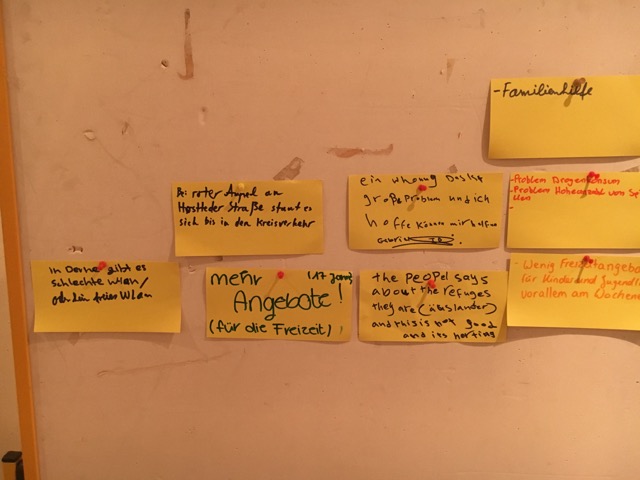 - Familienhilfe
Bei roter Ampel an
Hostteder Straße staut es
sich bis in den Kreisverkehr
ein whoung Das ist
große Problem und ich
hoffe können mir helfen
- Problem Drogenkonsum
- Problem Hohe anzahl von Spi
-
In Derne gibt es
schlechte wlan/
oder kein freies Wlan
mehr (17 Jahre)
Angebote!
(für die Freizeit)
the PeoPel says
about the refuges
they are (ausländer)
and this is not good
and its horting
- Wenig Freizeitangebo
für Kinder und Jugendlic
vorallem am Wochen